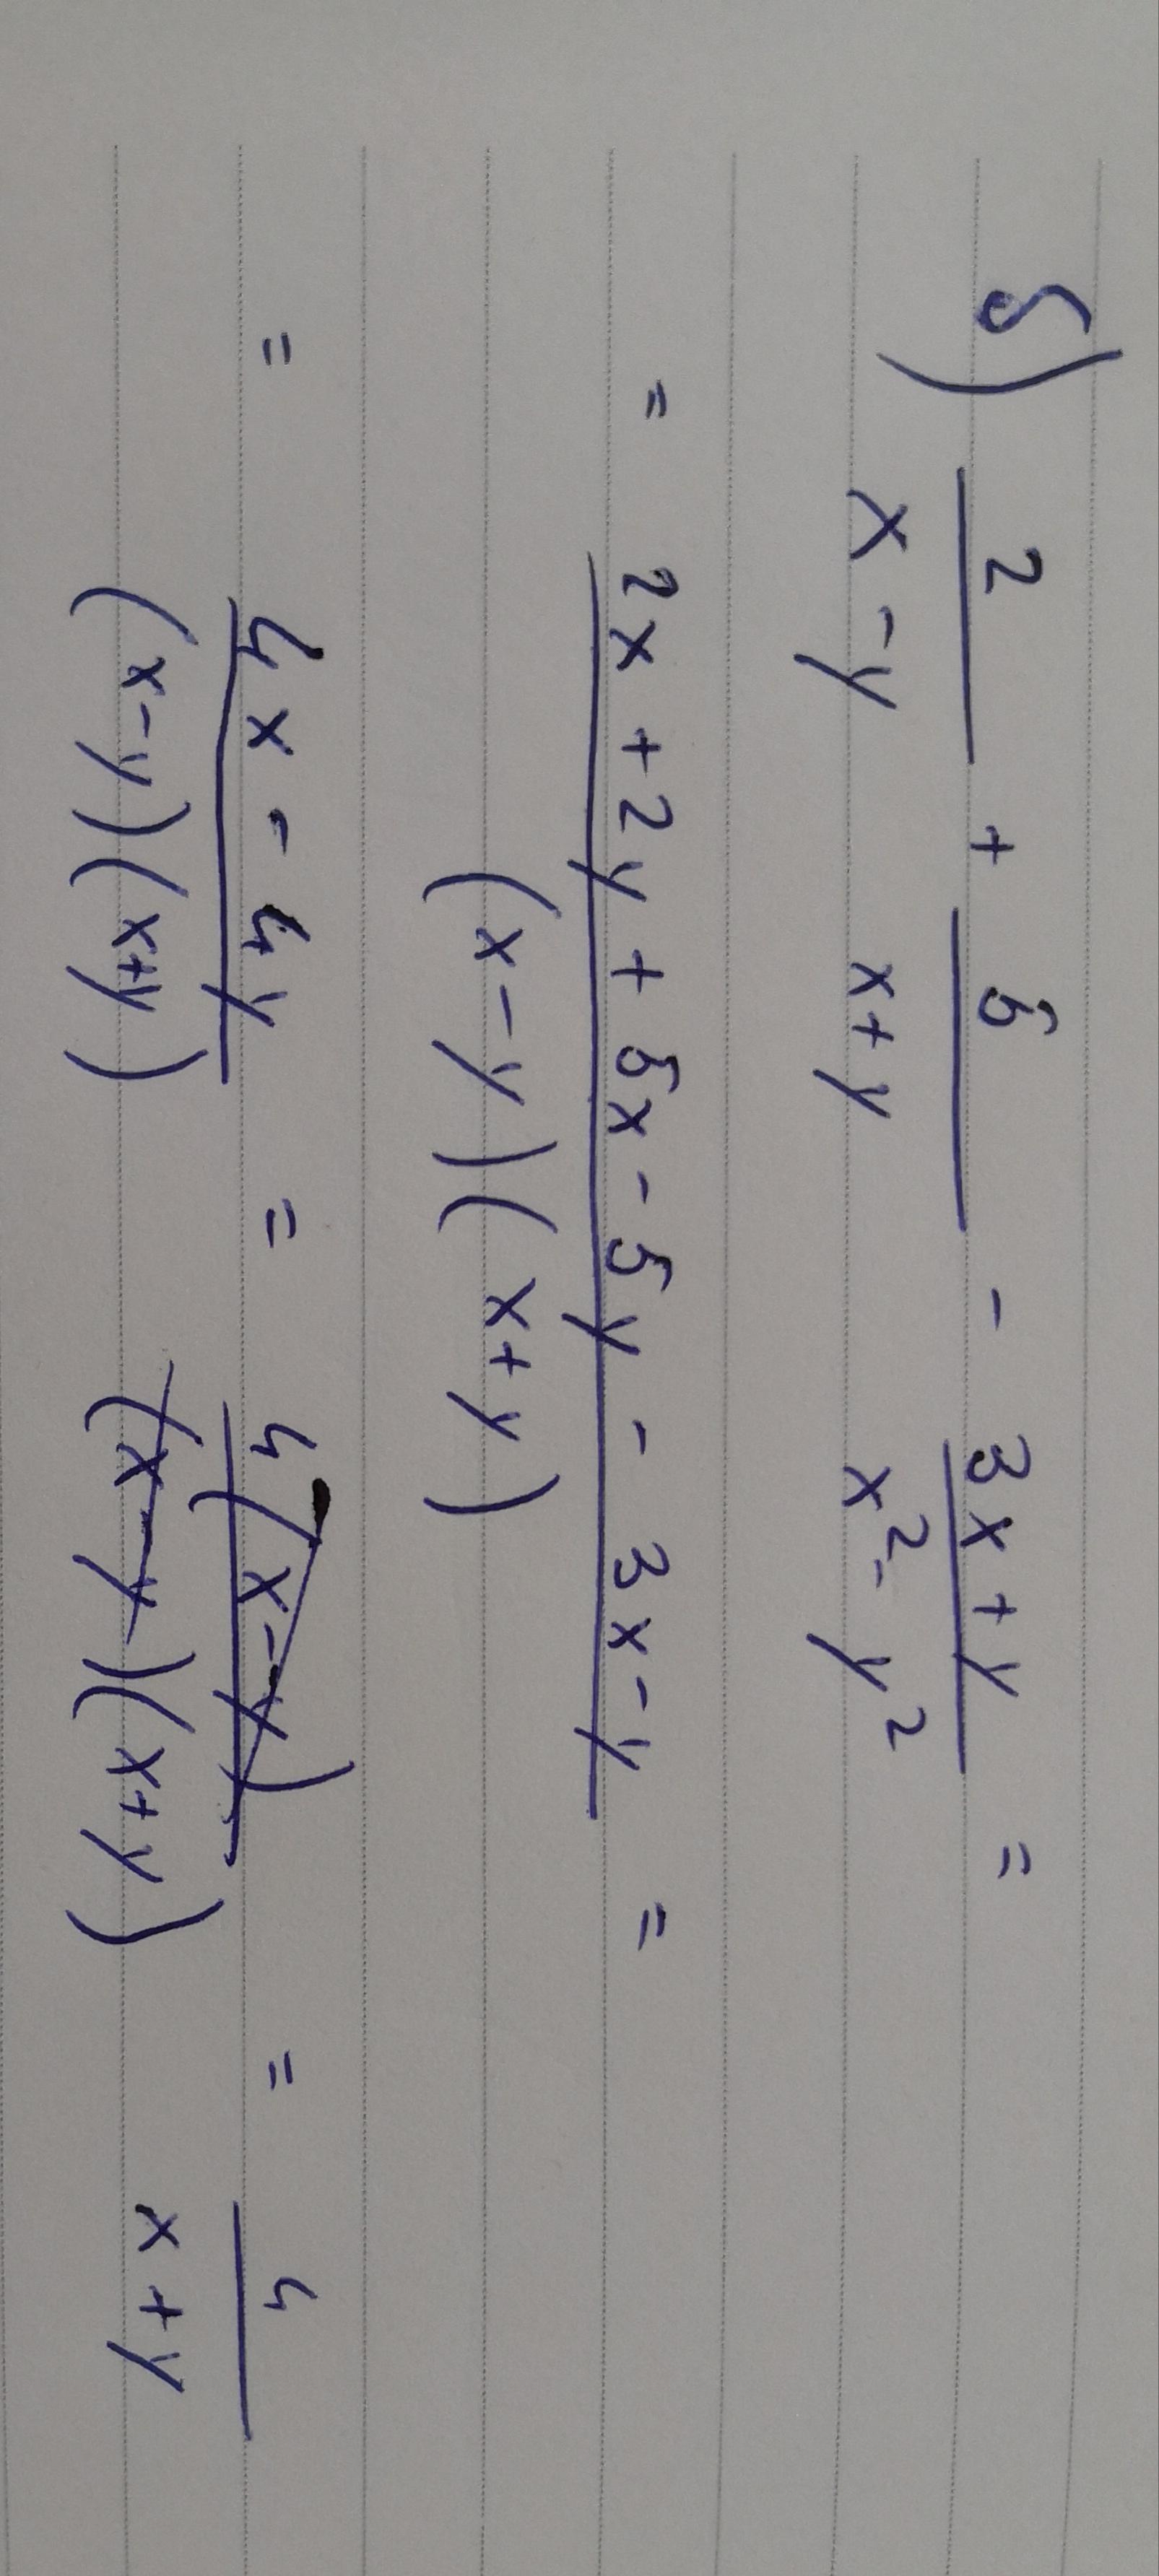 б) 2/(x-y) + 5/(x+y) - (3x+y)/(x²-y²) =
= (2x+2y+5x-5y-3x-y)/((x-y)(x+y)) =
= (4x-4y)/((x-y)(x+y)) = 4(x-y)/((x-y)(x+y)) = 4/(x+y)